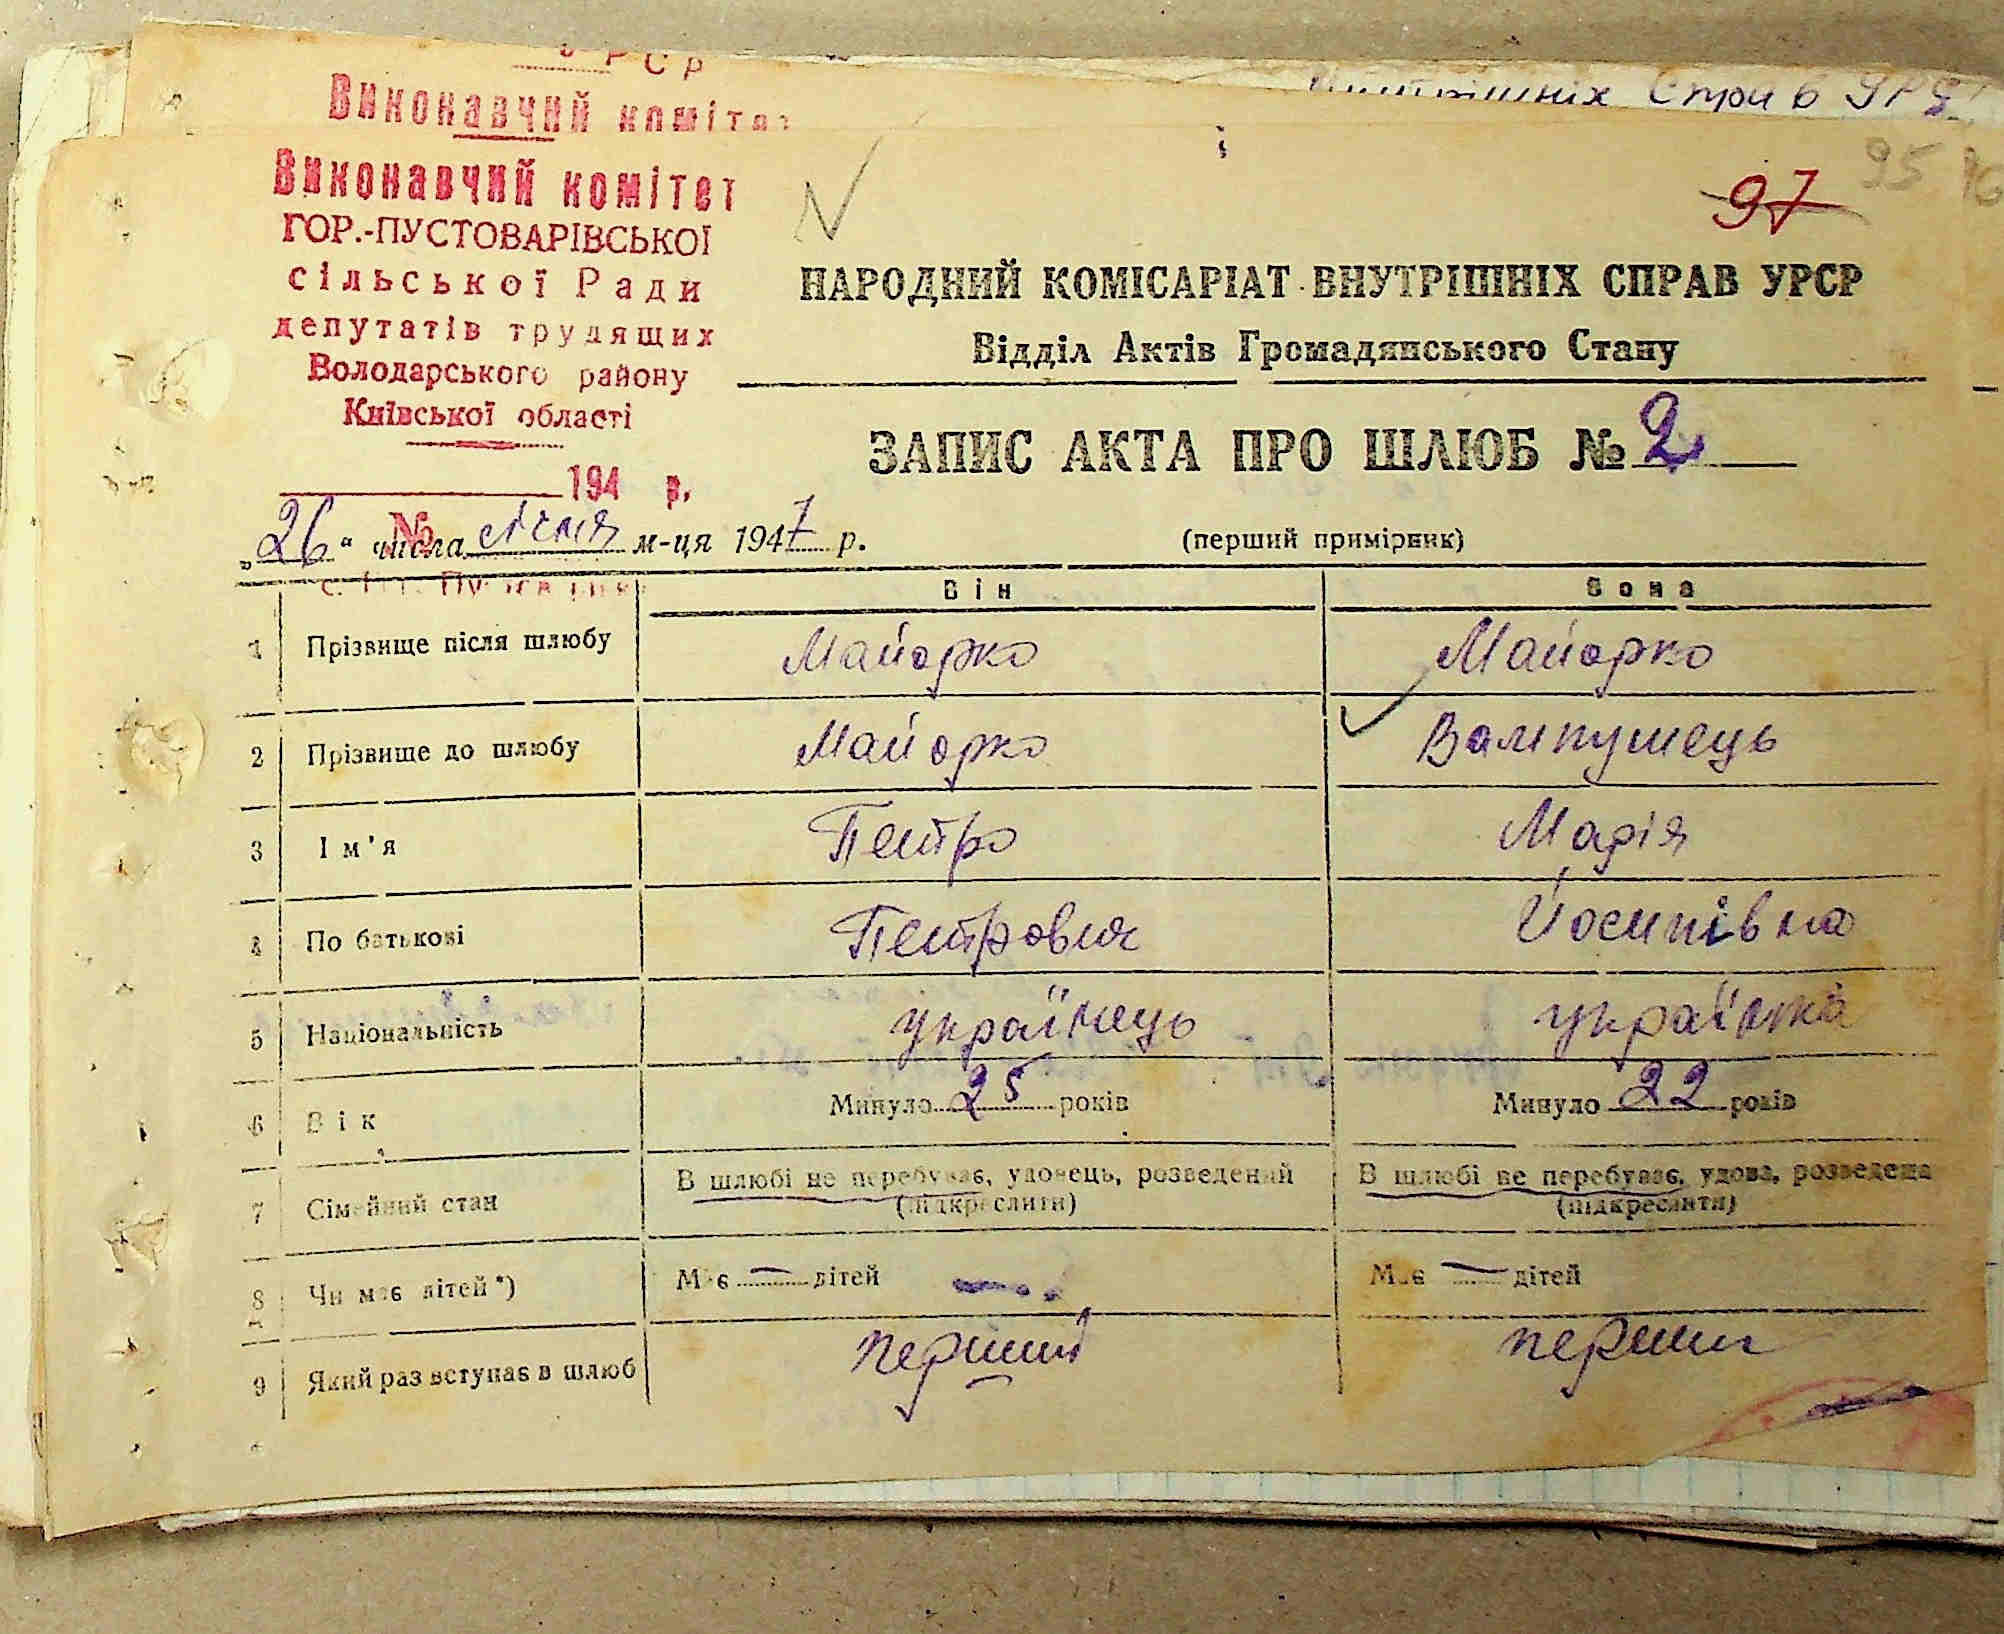 РСР
Виконавчий комітет
внутрішніх Справ УРСР
Виконавчий комітет
ГОР.-ПУСТОВАРІВСЬКОЇ
сільської Ради
депутатів трудящих
Володарського району
Київської області
194 р.
№
95
97
НАРОДНИЙ КОМІСАРІАТ ВНУТРІШНІХ СПРАВ УРСР
Відділ Актів Громадянського Стану
ЗАПИС АКТА ПРО ШЛЮБ № 2
(перший примірник)
„26“ числа липня м-ця 1947 р.
Він Вона
1 Прізвище після шлюбу Майорко Майорко
2 Прізвище до шлюбу Майорко Вампушець
3 Ім'я Петро Марія
4 По батькові Петрович Йосипівна
5 Національність українець українка
6 Вік Минуло 25 років Минуло 22 років
7 Сімейний стан В шлюбі не перебуває, удовець, розведений В шлюбі не перебуває, удова, розведена
(підкреслити) (підкреслити)
8 Чи має дітей*) Має — дітей Має — дітей
9 Який раз вступає в шлюб перший перший